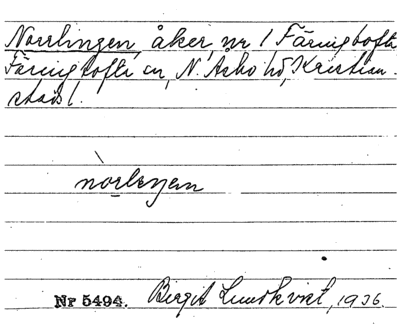 Norrlingen, åker, nr 1 Färingtofta
Färingtofta sn, N. Åsbo hd, Kristian-
stads l.
nòrlenjan
Nr 5494. Bergit Lundkvist, 1936.